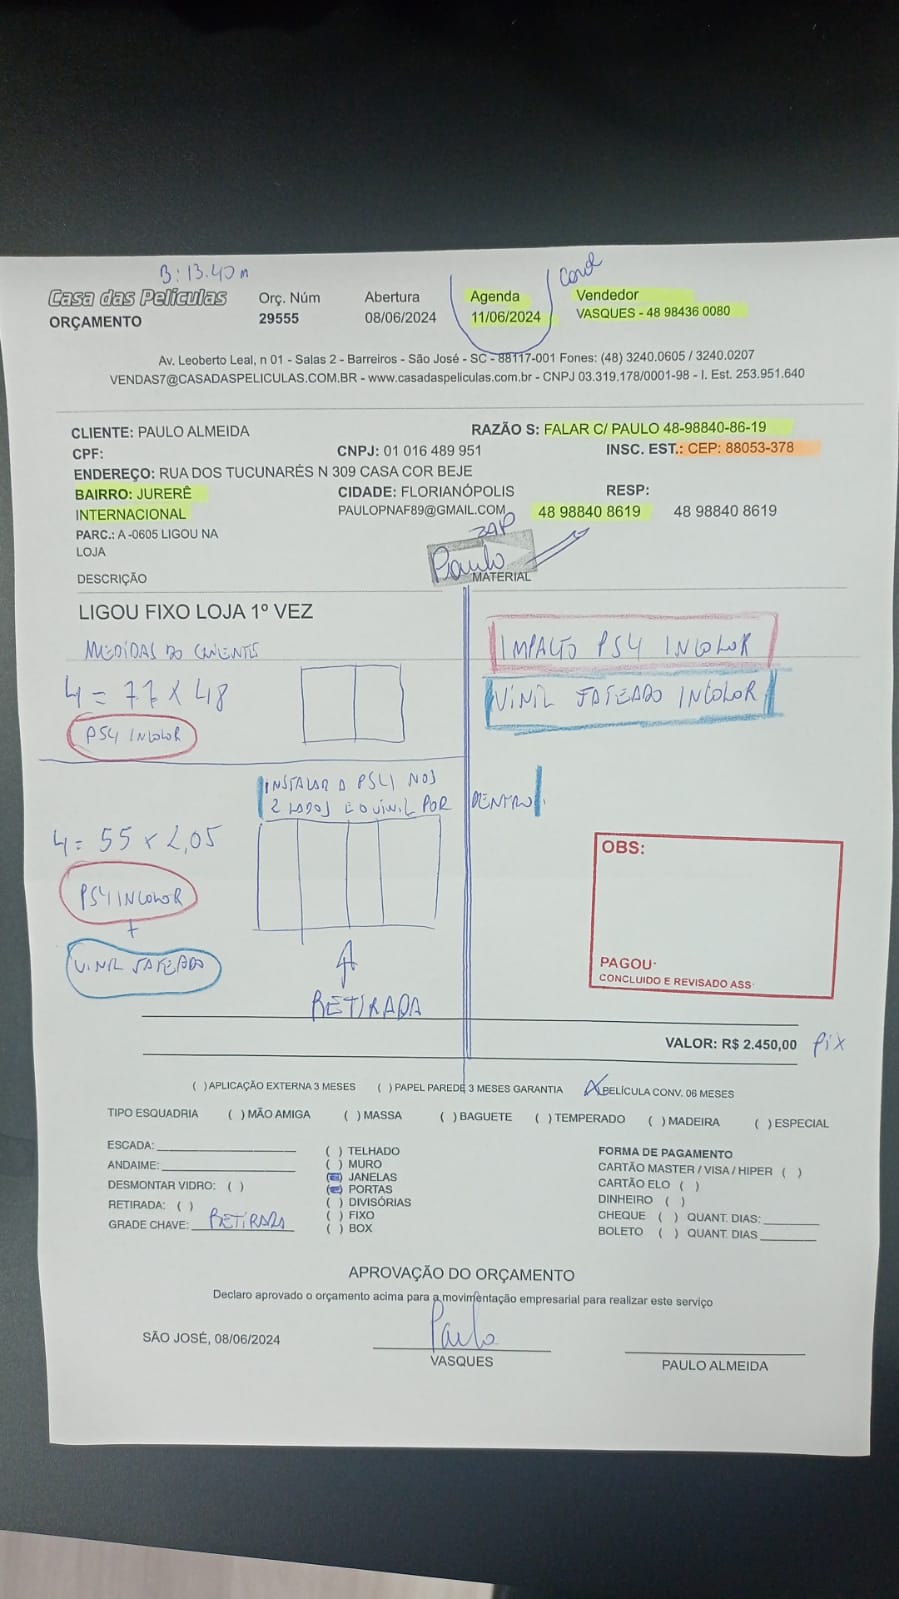 B: 13.40m
Casa das Películas
ORÇAMENTO
Orç. Núm
29555
Abertura
08/06/2024
Agenda
11/06/2024
Vendedor
VASQUES - 48 98436 0080
Av. Leoberto Leal, n 01 - Salas 2 - Barreiros - São José - SC - 88117-001 Fones: (48) 3240.0605 / 3240.0207
VENDAS7@CASADASPELICULAS.COM.BR - www.casadaspeliculas.com.br - CNPJ 03.319.178/0001-98 - I. Est. 253.951.640
CLIENTE: PAULO ALMEIDA
RAZÃO S: FALAR C/ PAULO 48-98840-86-19
CPF:
CNPJ: 01 016 489 951
INSC. EST.: CEP: 88053-378
ENDEREÇO: RUA DOS TUCUNARÉS N 309 CASA COR BEJE
BAIRRO: JURERÊ INTERNACIONAL
CIDADE: FLORIANÓPOLIS
RESP:
PAULOPNAF89@GMAIL.COM
48 98840 8619
48 98840 8619
PARC.: A -0605 LIGOU NA
LOJA
ZAP
Paulo
DESCRIÇÃO
MATERIAL
LIGOU FIXO LOJA 1º VEZ
MEDIDAS DO CLIENTE
4 = 77 x 48
PS4 INCOLOR
IMPACTO PS4 INCOLOR
VINIL JATEADO INCOLOR
INSTALAR O PS4 NOS
2 LADOS E O VINIL POR DENTRO
4 = 55 x 2,05
PS4 INCOLOR
+
VINIL JATEADO
RETIRADA
OBS:
PAGOU:
CONCLUIDO E REVISADO ASS:
VALOR: R$ 2.450,00 Pix
( ) APLICAÇÃO EXTERNA 3 MESES ( ) PAPEL PAREDE 3 MESES GARANTIA (X) PELÍCULA CONV. 06 MESES
TIPO ESQUADRIA ( ) MÃO AMIGA ( ) MASSA ( ) BAGUETE ( ) TEMPERADO ( ) MADEIRA ( ) ESPECIAL
ESCADA:
ANDAIME:
DESMONTAR VIDRO: ( )
RETIRADA: ( )
GRADE CHAVE: RETIRADA
( ) TELHADO
( ) MURO
( ) JANELAS
( ) PORTAS
( ) DIVISÓRIAS
( ) FIXO
( ) BOX
FORMA DE PAGAMENTO
CARTÃO MASTER / VISA / HIPER ( )
CARTÃO ELO ( )
DINHEIRO ( )
CHEQUE ( ) QUANT. DIAS:
BOLETO ( ) QUANT. DIAS
APROVAÇÃO DO ORÇAMENTO
Declaro aprovado o orçamento acima para a movimentação empresarial para realizar este serviço
SÃO JOSÉ, 08/06/2024
Paulo
VASQUES
PAULO ALMEIDA